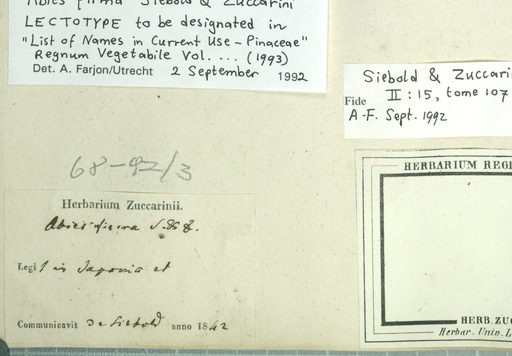 Abies firma Siebold & Zuccarini
LECTOTYPE to be designated in
"List of Names in Current Use - Pinaceae"
Regnum Vegetabile Vol. .... (1993)
Det. A. Farjon/Utrecht 2 September 1992
Siebold & Zuccari
Fide II : 15, tome 107
A.F. Sept. 1992
68-92/3
Herbarium Zuccarinii.
Abies firma S. & Z.
Legi in Japonia et
Communicavit De Siebold anno 1842
HERBARIUM REGI
HERB. ZUC
Herbar. Univ. L